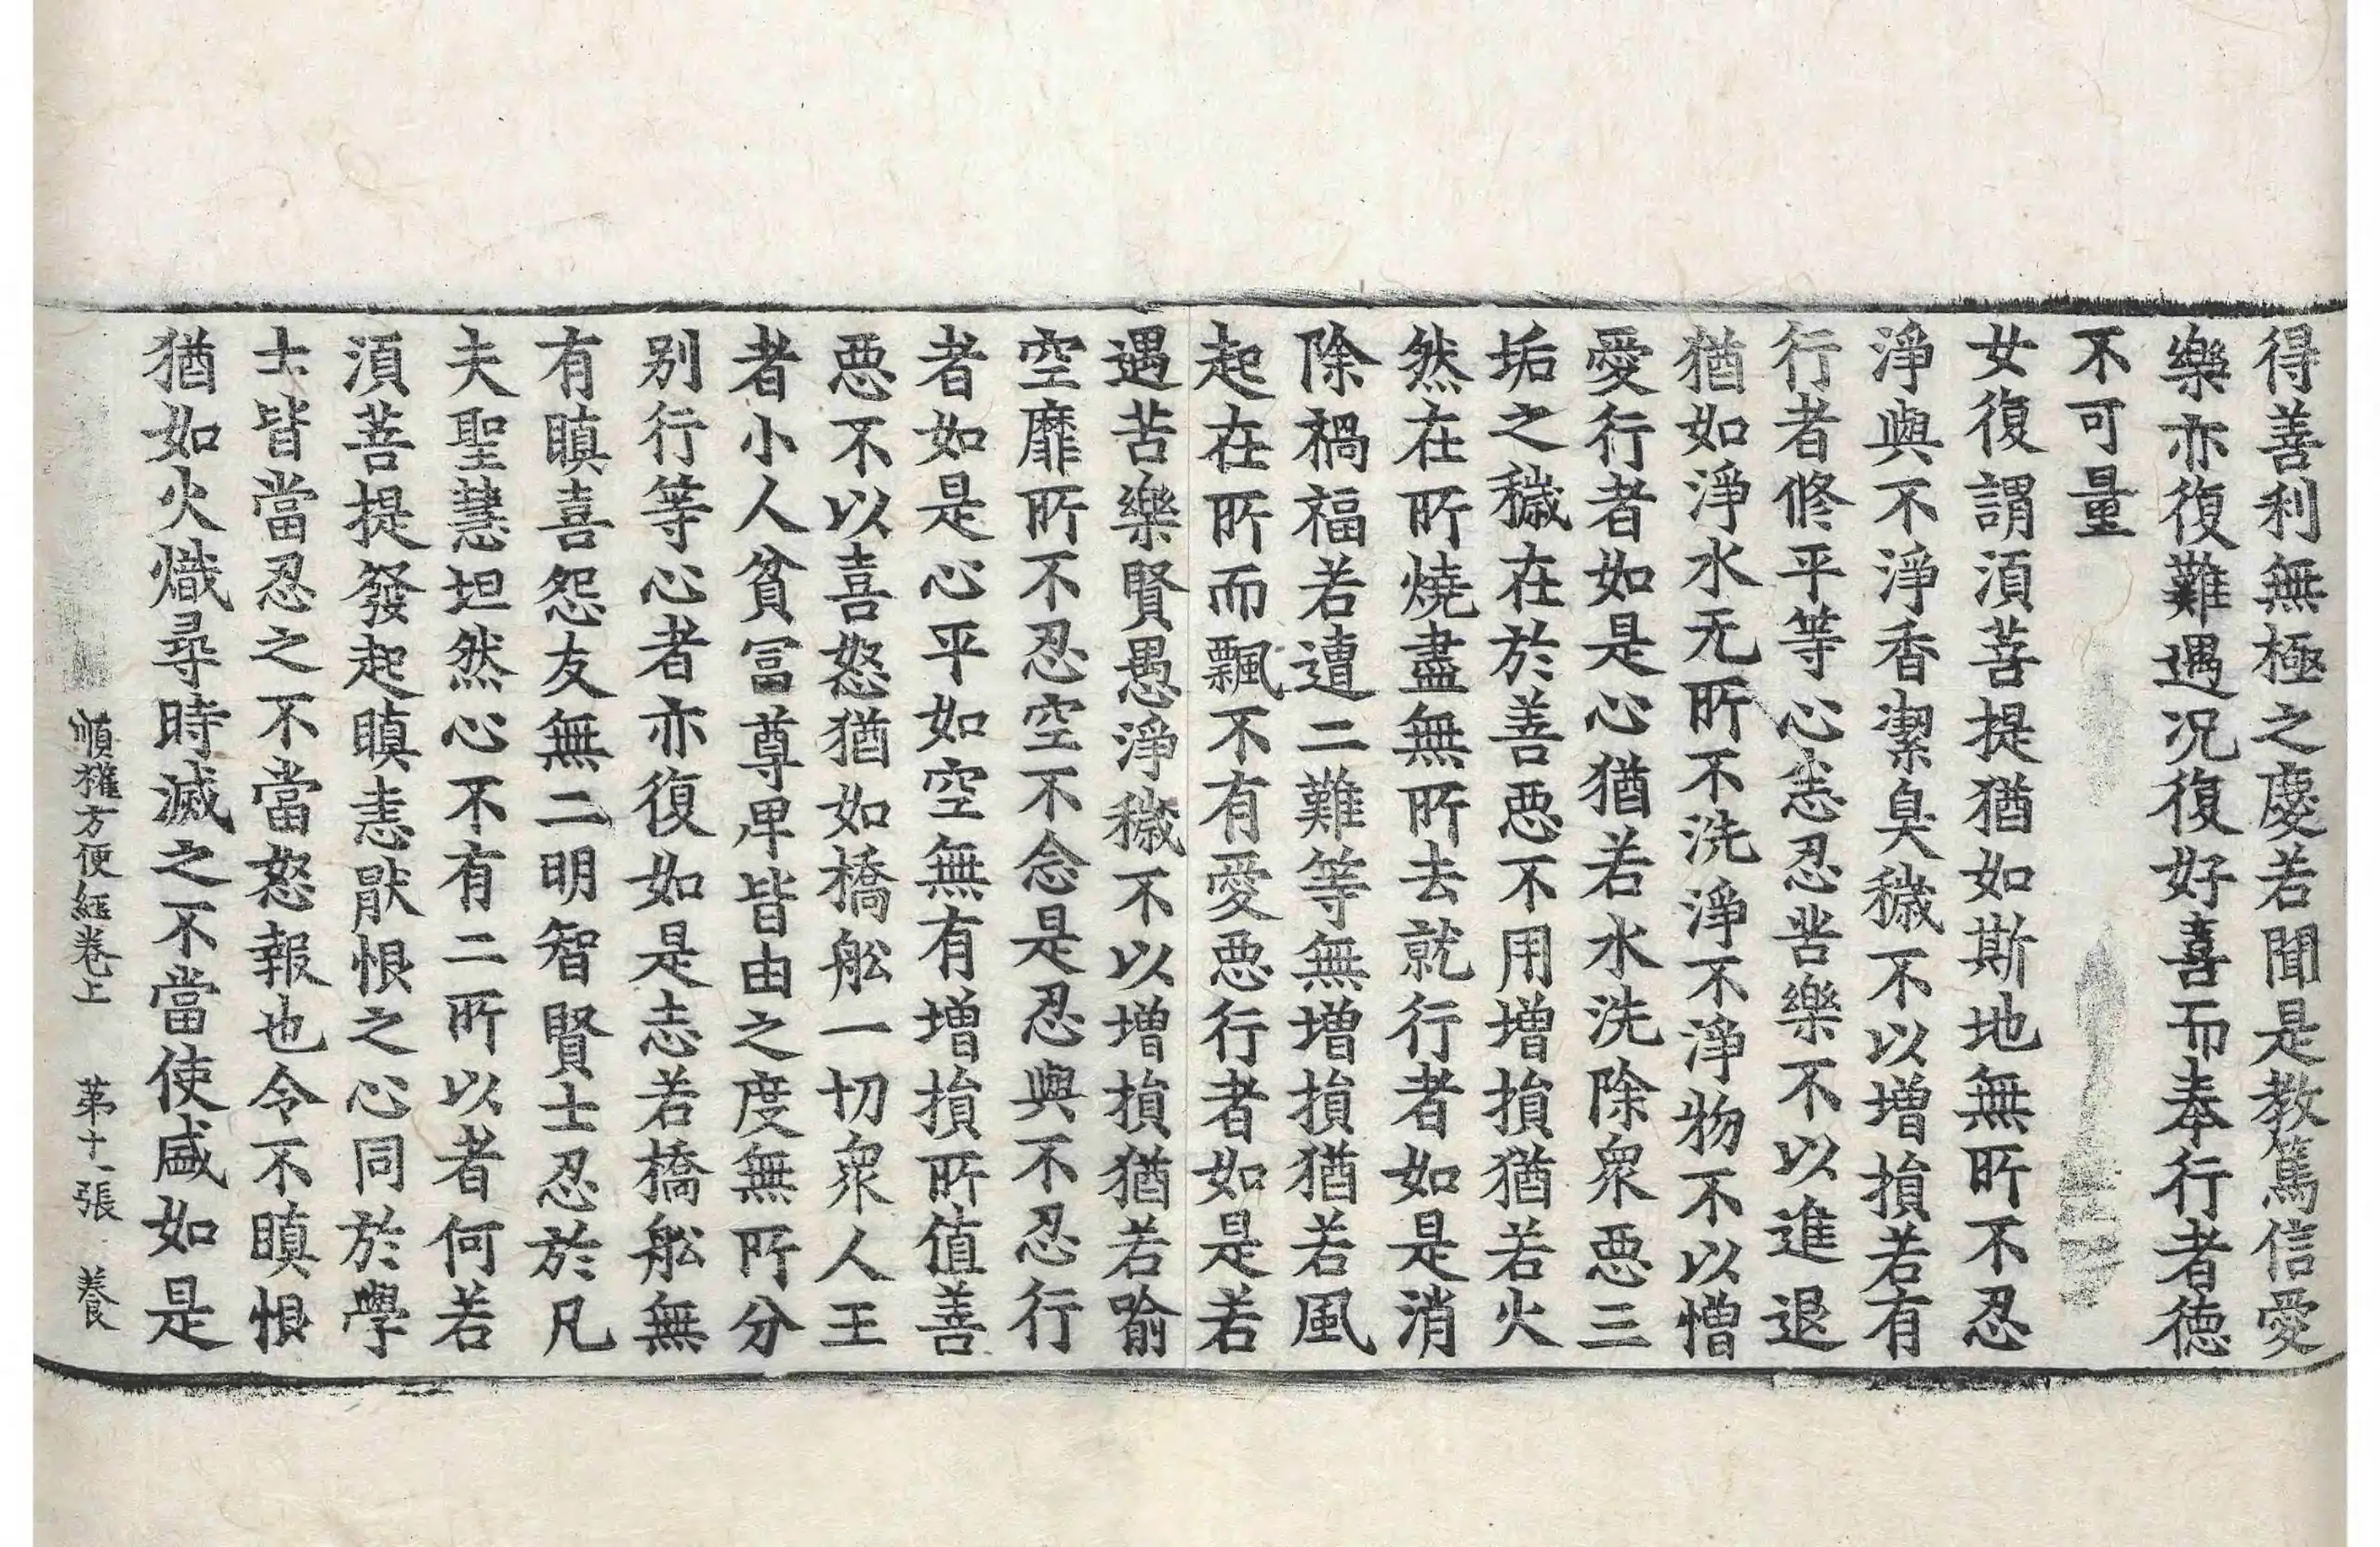 得善利無極之慶若聞是教篤信愛
樂亦復難遇况復好喜而奉行者德
不可量
女復謂湏菩提猶如斯地無所不忍
淨與不淨香潔臭穢不以增損若有
行者修平等心志忍苦樂不以進退
猶如淨水无所不洗淨不淨物不以憎
愛行者如是心猶若水洗除衆惡三
垢之穢在於善惡不用增損猶若火
然在所燒盡無所去就行者如是消
除禍福若遭二難等無增損猶若風
起在所而飄不有愛惡行者如是若
遇苦樂賢愚淨穢不以增損猶若喻
空靡所不忍空不念是忍與不忍行
者如是心平如空無有增損所值善
惡不以喜怒猶如橋舩一切衆人王
者小人貧冨尊卑皆由之度無所分
别行等心者亦復如是志若橋舩無
有瞋喜怨友無二明智賢士忍於凡
夫聖慧坦然心不有二所以者何若
湏菩提發起瞋恚猒恨之心同於學
士皆當忍之不當怒報也令不瞋恨
猶如火熾尋時滅之不當使盛如是
順權方便経卷上 苐十一張 養